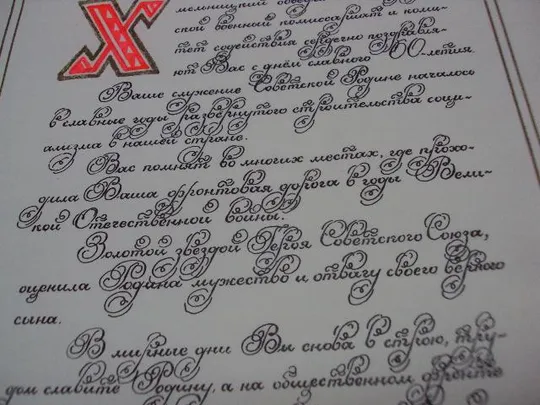 Хмельницкий
ской военный комиссариат и коми-
тет содействия сердечно поздравля-
ют Вас с днём славного 60-летия.
Ваше служение Советской Родине началось
в славные годы развернутого строительства соци-
ализма в нашей стране.
Вас помнят во многих местах, где прохо-
дила Ваша фронтовая дорога в годы Вели-
кой Отечественной войны.
Золотой звездой Героя Советского Союза,
оценила Родина мужество и отвагу своего верного
сына.
В мирные дни Вы снова в строю, тру-
дом славите Родину, а на общественном фронте